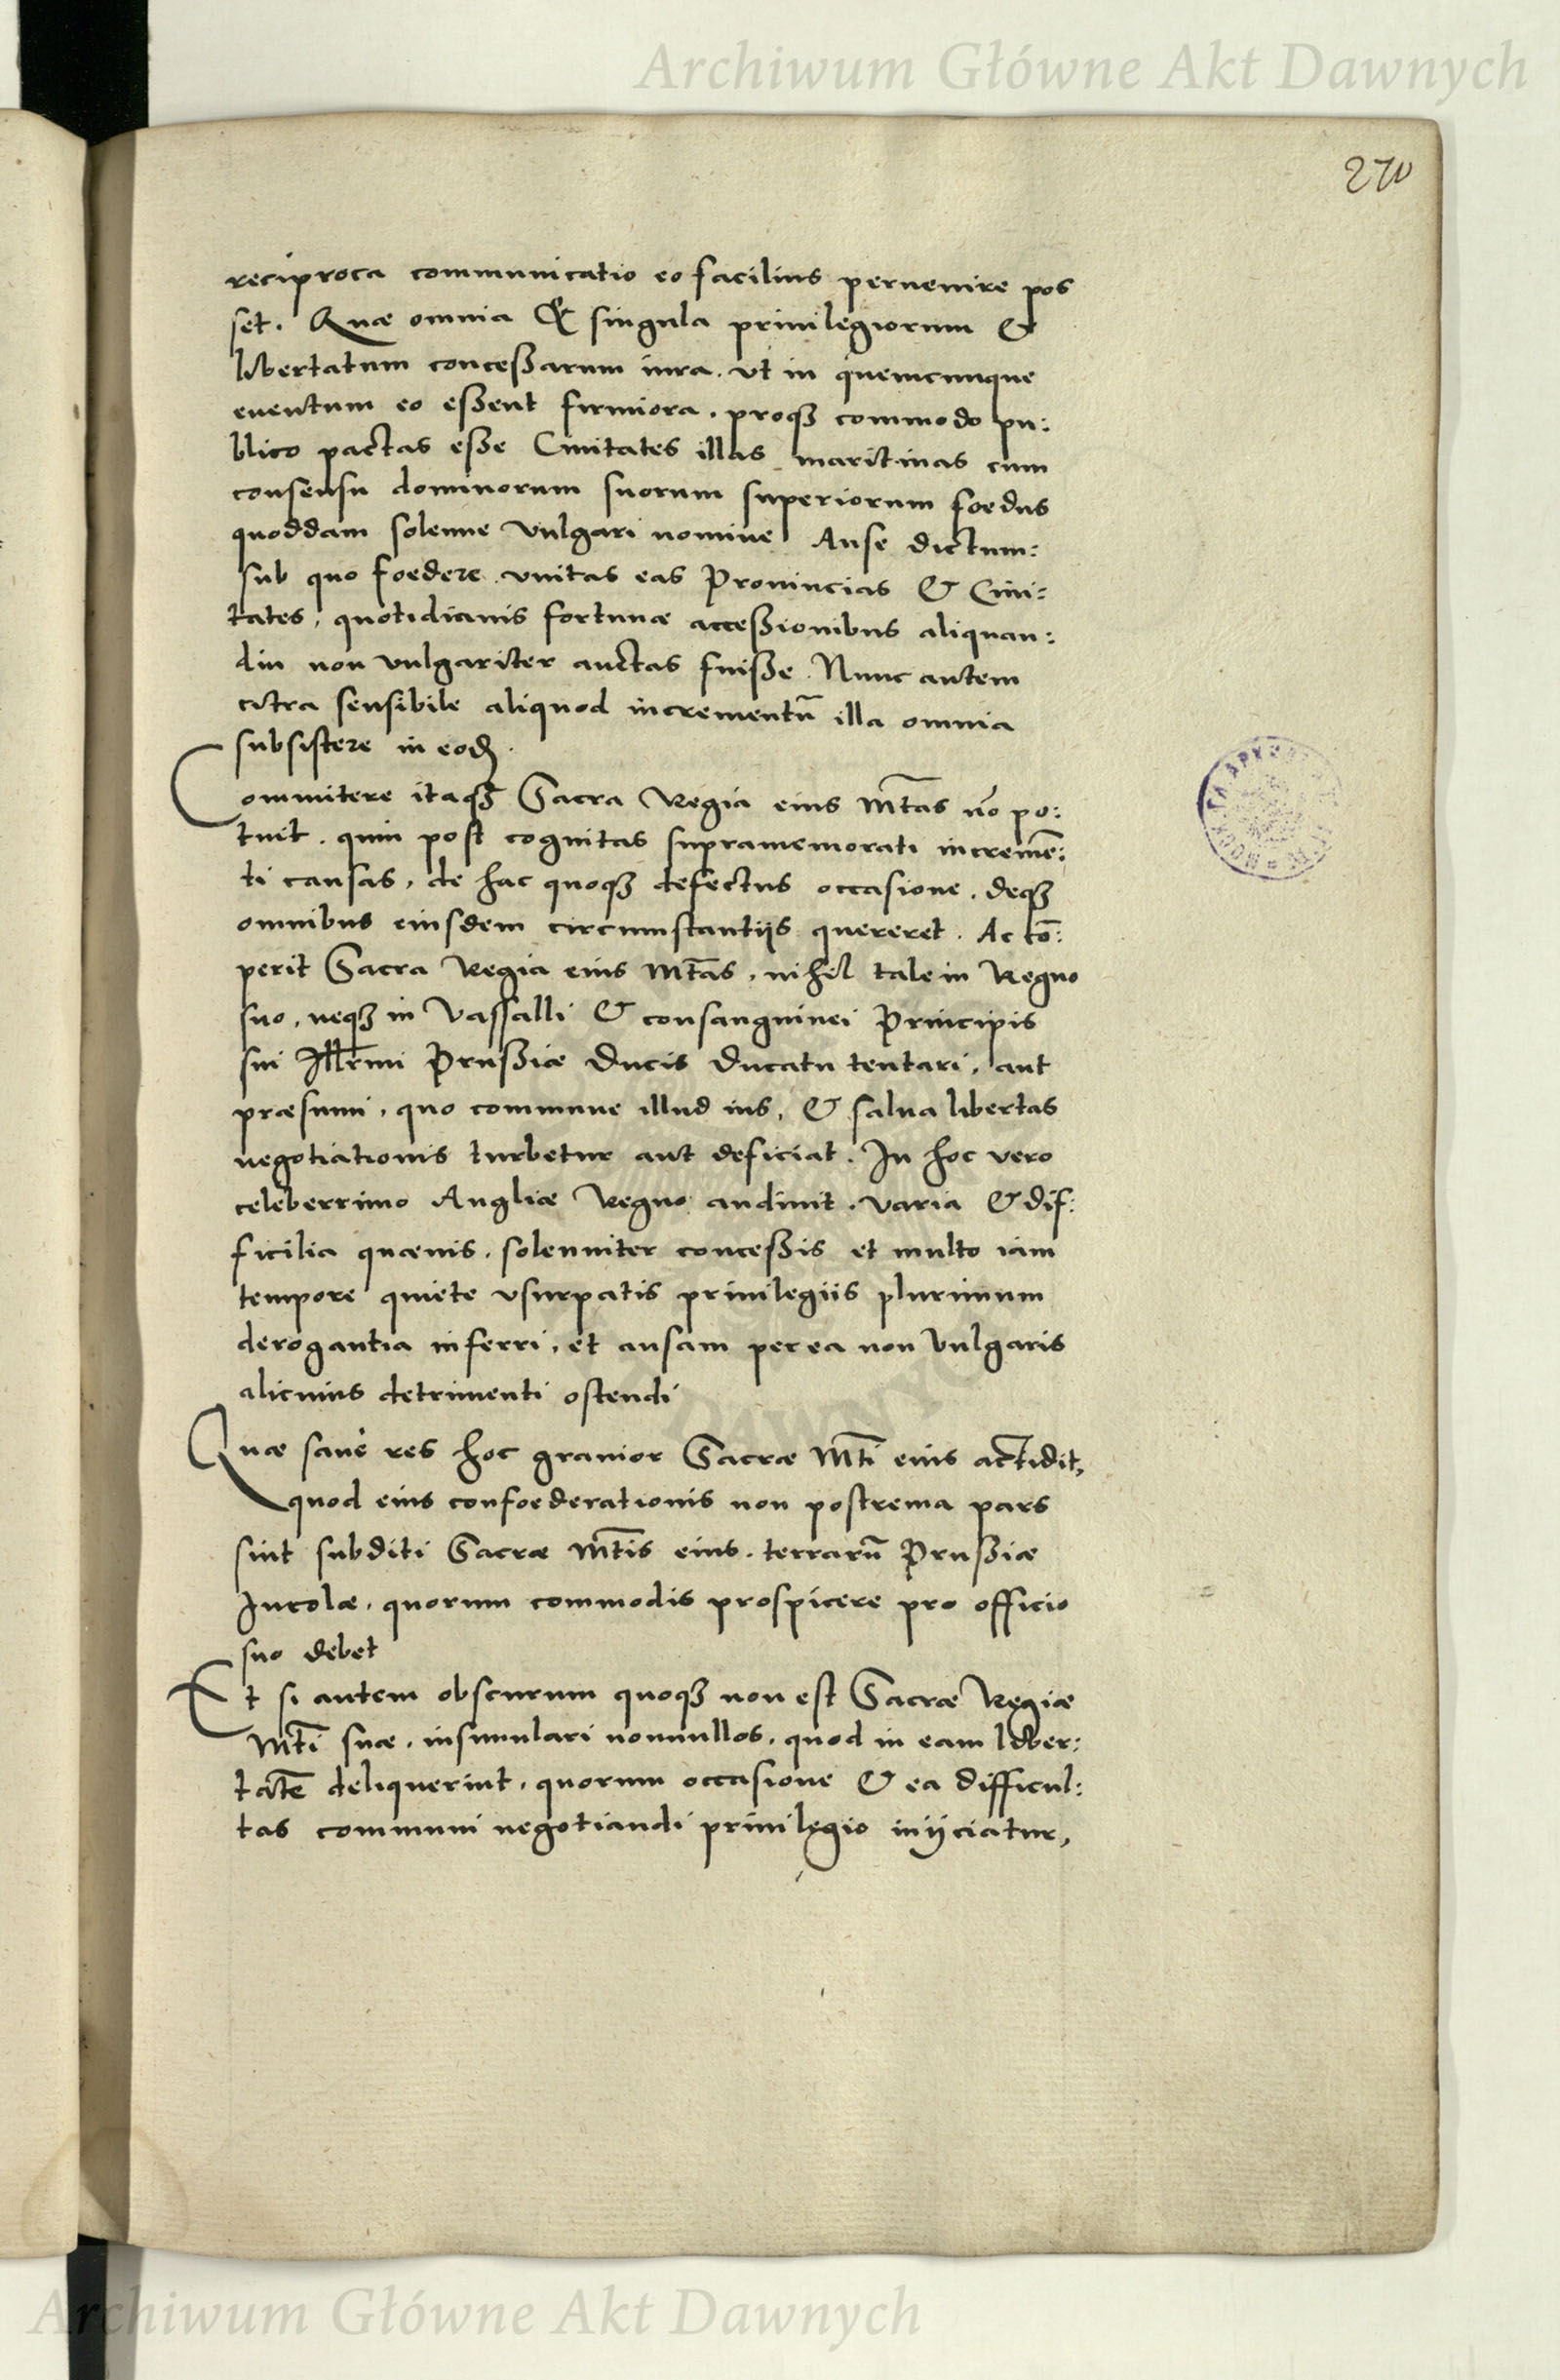 Archiwum Główne Akt Dawnych
270
reciproca communicatio eo facilius peruenire pos
set. Quæ omnia & singula priuilegiorum &
libertatum conceßarum iura. vt in quemcunque
euentum eo eßent firmiora. proqȝ commodo pu:
blico pactas eße Ciuitates illas maritimas cum
consensu dominorum suorum superiorum foedus
quoddam solenne vulgari nomine Anse dictum:
sub quo foedere vnitas eas Prouincias & Ciui:
tates, quotidianis fortunæ acceßionibus aliquan:
diu non vulgariter auctas fuiße. Nunc autem
citra sensibile aliquod incrementū illa omnia
subsistere in eod.
Commitere itaqȝ Sacra Regia eius Mtas nō po:
tuit. quin post cognitas supramemorati incremē:
ti causas, de hac quoqȝ defectus occasione, deqȝ
omnibus eiusdem circumstantijs quereret. Ac cō:
perit Sacra Regia eius Mtas, nihil tale in Regno
suo, neqȝ in Vassalli & consanguinei Principis
sui Illrmi Prußiæ Ducis Ducatu tentari, aut
præsumi, quo commune illud ius, & salua libertas
negotiationis turbetur aut deficiat. In hoc vero
celeberrimo Angliæ Regno audiuit. varia & dif:
ficilia quæuis, solenniter conceßis et multo iam
tempore quiete vsurpatis priuilegiis plurimum
derogantia inferri, et ansam per ea non vulgaris
alicuius detrimenti ostendi
Quæ sane res hoc grauior Sacræ Mti eius accidit,
quod eius confoederationis non postrema pars
sint subditi Sacræ Mtis eius. terrarū Prußiæ
Incolæ, quorum commodis prospicere pro officio
suo debet
Et si autem obscurum quoqȝ non est Sacræ Regiæ
Mti suæ, insimulari nonnullos, quod in eam liber:
tatē deliquerint, quorum occasione & ea difficul:
tas communi negotiandi priuilegio inijciatur,
Archiwum Główne Akt Dawnych